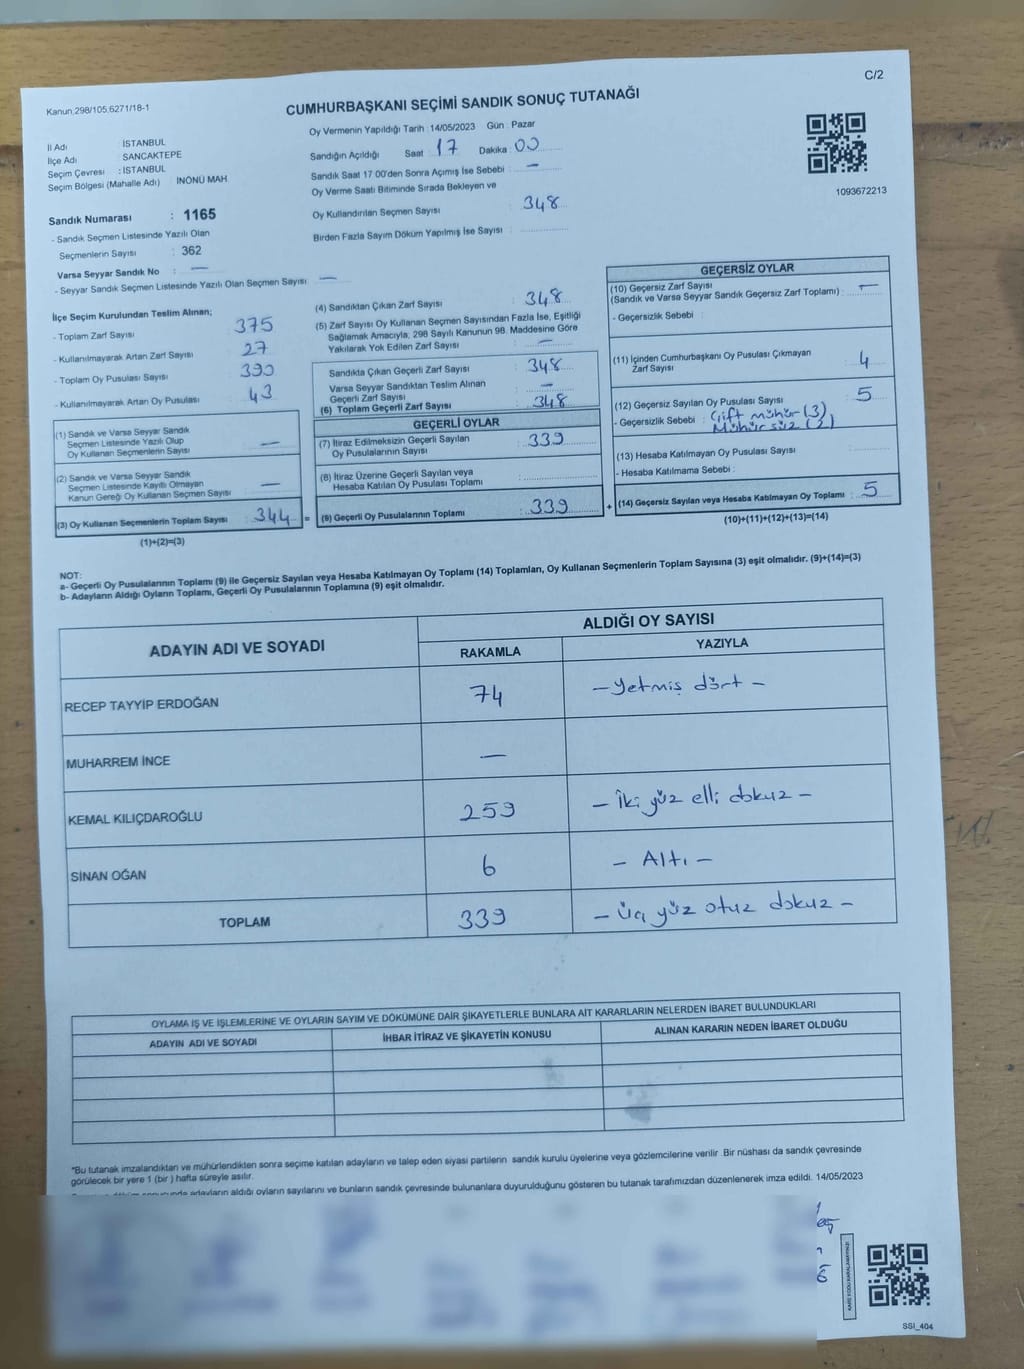 C/2
Kanun;298/105,6271/18-1
CUMHURBAŞKANI SEÇİMİ SANDIK SONUÇ TUTANAĞI
İl Adı : İSTANBUL
İlçe Adı : SANCAKTEPE
Seçim Çevresi : İSTANBUL
Seçim Bölgesi (Mahalle Adı) : İNÖNÜ MAH
Oy Vermenin Yapıldığı Tarih :14/05/2023 Gün : Pazar
Sandığın Açıldığı Saat : 17 Dakika : 00
Sandık Saat 17:00'den Sonra Açımış İse Sebebi : —
Oy Verme Saati Bitiminde Sırada Bekleyen ve
Oy Kullandırılan Seçmen Sayısı : 348
Birden Fazla Sayım Döküm Yapılmış İse Sayısı :
1093672213
Sandık Numarası : 1165
- Sandık Seçmen Listesinde Yazılı Olan
Seçmenlerin Sayısı : 362
Varsa Seyyar Sandık No : —
- Seyyar Sandık Seçmen Listesinde Yazılı Olan Seçmen Sayısı : —
İlçe Seçim Kurulundan Teslim Alınan;
- Toplam Zarf Sayısı : 375
- Kullanılmayarak Artan Zarf Sayısı : 27
- Toplam Oy Pusulası Sayısı : 390
- Kullanılmayarak Artan Oy Pusulası : 43
(1) Sandık ve Varsa Seyyar Sandık
Seçmen Listesinde Yazılı Olup
Oy Kullanan Seçmenlerin Sayısı : —
(2) Sandık ve Varsa Seyyar Sandık
Seçmen Listesinde Kayıtlı Olmayan
Kanun Gereği Oy Kullanan Seçmen Sayısı : —
(3) Oy Kullanan Seçmenlerin Toplam Sayısı : 344
(1)+(2)=(3)
(4) Sandıktan Çıkan Zarf Sayısı : 348
(5) Zarf Sayısı Oy Kullanan Seçmen Sayısından Fazla İse, Eşitliği
Sağlamak Amacıyla, 298 Sayılı Kanunun 98. Maddesine Göre
Yakılarak Yok Edilen Zarf Sayısı : —
Sandıkta Çıkan Geçerli Zarf Sayısı : 348
Varsa Seyyar Sandıktan Teslim Alınan
Geçerli Zarf Sayısı : —
(6) Toplam Geçerli Zarf Sayısı : 348
GEÇERLİ OYLAR
(7) İtiraz Edilmeksizin Geçerli Sayılan
Oy Pusulalarının Sayısı : 339
(8) İtiraz Üzerine Geçerli Sayılan veya
Hesaba Katılan Oy Pusulası Toplamı :
= (9) Geçerli Oy Pusulalarının Toplamı : 339
GEÇERSİZ OYLAR
(10) Geçersiz Zarf Sayısı
(Sandık ve Varsa Seyyar Sandık Geçersiz Zarf Toplamı) : —
- Geçersizlik Sebebi :
(11) İçinden Cumhurbaşkanı Oy Pusulası Çıkmayan
Zarf Sayısı : 4
(12) Geçersiz Sayılan Oy Pusulası Sayısı : 5
- Geçersizlik Sebebi : Çift mühür (3),
Mühürsüz (2)
(13) Hesaba Katılmayan Oy Pusulası Sayısı :
- Hesaba Katılmama Sebebi :
+ (14) Geçersiz Sayılan veya Hesaba Katılmayan Oy Toplamı : 5
(10)+(11)+(12)+(13)=(14)
NOT:
a- Geçerli Oy Pusulalarının Toplamı (9) ile Geçersiz Sayılan veya Hesaba Katılmayan Oy Toplamı (14) Toplamları, Oy Kullanan Seçmenlerin Toplam Sayısına (3) eşit olmalıdır. (9)+(14)=(3)
b- Adayların Aldığı Oyların Toplamı, Geçerli Oy Pusulalarının Toplamına (9) eşit olmalıdır.
ADAYIN ADI VE SOYADI
ALDIĞI OY SAYISI
RAKAMLA YAZIYLA
RECEP TAYYİP ERDOĞAN 74 – Yetmiş dört –
MUHARREM İNCE —
KEMAL KILIÇDAROĞLU 259 – İki yüz elli dokuz –
SİNAN OĞAN 6 – Altı –
TOPLAM 339 – Üç yüz otuz dokuz –
OYLAMA İŞ VE İŞLEMLERİNE VE OYLARIN SAYIM VE DÖKÜMÜNE DAİR ŞİKAYETLERLE BUNLARA AİT KARARLARIN NELERDEN İBARET BULUNDUKLARI
ADAYIN ADI VE SOYADI İHBAR İTİRAZ VE ŞİKAYETİN KONUSU ALINAN KARARIN NEDEN İBARET OLDUĞU
*Bu tutanak imzalandıktan ve mühürlendikten sonra seçime katılan adayların ve talep eden siyasi partilerin sandık kurulu üyelerine veya gözlemcilerine verilir. Bir nüshası da sandık çevresinde
görülecek bir yere 1 (bir ) hafta süreyle asılır.
adayların aldığı oyların sayılarını ve bunların sandık çevresinde bulunanlara duyurulduğunu gösteren bu tutanak tarafımızdan düzenlenerek imza edildi. 14/05/2023
KARE KODU KARALAMAYINIZ!
SSI_404